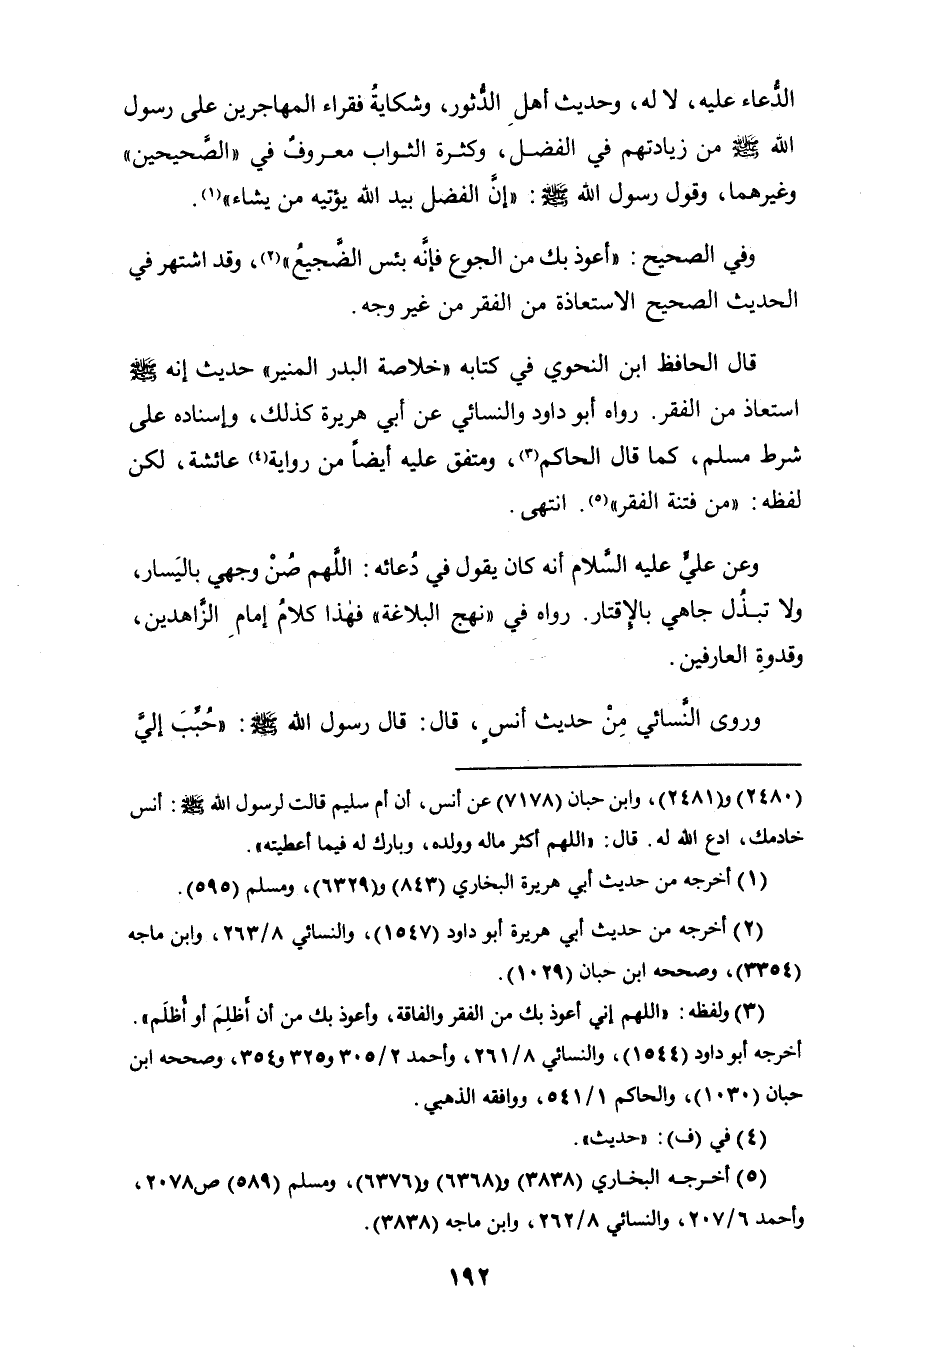 الدُّعاء عليه، لا له، وحديث أهلِ الدُّثور، وشكايةُ فقراء المهاجرين على رسول
الله ﷺ من زيادتهم في الفضل، وكثرة الثواب معروفٌ في «الصَّحيحين»
وغيرهما، وقول رسول الله ﷺ: «إنَّ الفضل بيد الله يؤتيه من يشاء»(١).
وفي الصحيح: «أعوذ بك من الجوع فإنَّه بئس الضَّجيعُ»(٢)، وقد اشتهر في
الحديث الصحيح الاستعاذة من الفقر من غير وجه.
قال الحافظ ابن النحوي في كتابه «خلاصة البدر المنير» حديث إنه ﷺ
استعاذ من الفقر. رواه أبو داود والنسائي عن أبي هريرة كذلك، وإسناده على
شرط مسلم، كما قال الحاكم(٣)، ومتفق عليه أيضاً من رواية(٤) عائشة، لكن
لفظه: «من فتنة الفقر»(٥). انتهى.
وعن عليٍّ عليه السَّلام أنه كان يقول في دُعائه: اللَّهم صُنْ وجهي باليَسار،
ولا تبذُل جاهي بالإِقتار. رواه في «نهج البلاغة» فهٰذا كلامُ إمامِ الزَّاهدين،
وقدوةِ العارفين.
وروى النَّسائي مِنْ حديث أنسٍ، قال: قال رسول الله ﷺ: «حُبِّبَ إليَّ
(٢٤٨٠) و(٢٤٨١)، وابن حبان (٧١٧٨) عن أنس، أن أم سليم قالت لرسول الله ﷺ: أنس
خادمك، ادع الله له. قال: «اللهم أكثر ماله وولده، وبارك له فيما أعطيته».
(١) أخرجه من حديث أبي هريرة البخاري (٨٤٣) و(٦٣٢٩)، ومسلم (٥٩٥).
(٢) أخرجه من حديث أبي هريرة أبو داود (١٥٤٧)، والنسائي ٢٦٣/٨، وابن ماجه
(٣٣٥٤)، وصححه ابن حبان (١٠٢٩).
(٣) ولفظه: «اللهم إني أعوذ بك من الفقر والفاقة، وأعوذ بك من أن أَظلِمَ أو أُظلَم».
أخرجه أبو داود (١٥٤٤)، والنسائي ٢٦١/٨، وأحمد ٣٠٥/٢ و٣٢٥ و٣٥٤، وصححه ابن
حبان (١٠٣٠)، والحاكم ٥٤١/١، ووافقه الذهبي.
(٤) في (ف): «حديث».
(٥) أخرجه البخاري (٣٨٣٨) و(٦٣٦٨) و(٦٣٧٦)، ومسلم (٥٨٩) ص٢٠٧٨،
وأحمد ٢٠٧/٦، والنسائي ٢٦٢/٨، وابن ماجه (٣٨٣٨).
١٩٢